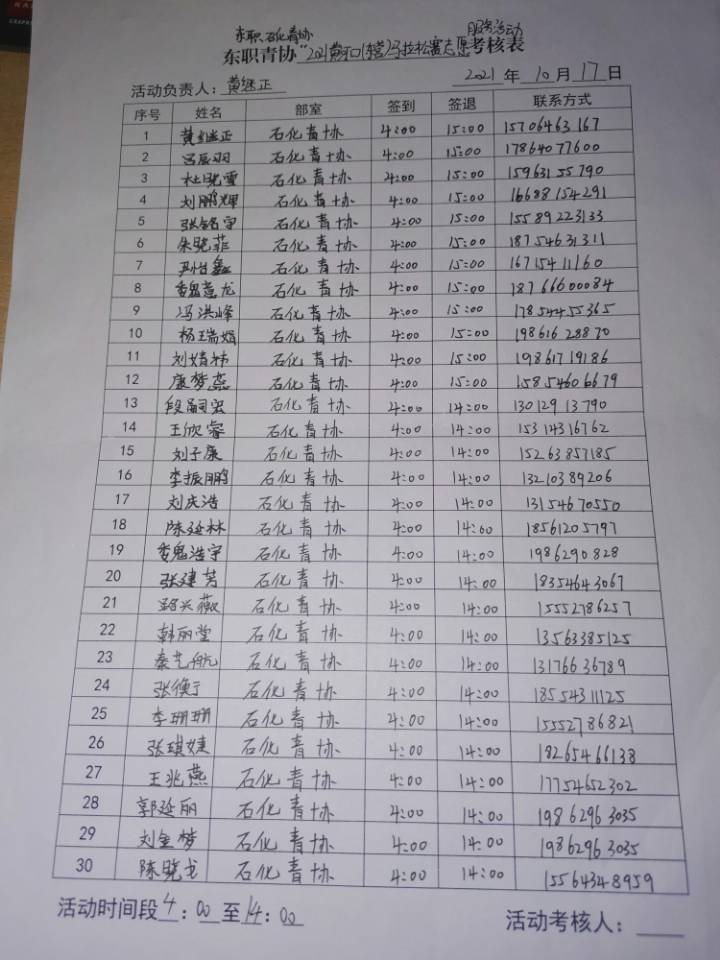 东职石化青协 服务活动
东职青协“2021黄河口(东营)马拉松赛志愿考核表
活动负责人：黄继正 2021年10月17日
序号 姓名 部室 签到 签退 联系方式
1 黄继正 石化青协 4:00 15:00 15706463167
2 吕辰羽 石化青协 4:00 15:00 17864077600
3 杜晓雪 石化青协 4:00 15:00 15963155790
4 刘鹏辉 石化青协 4:00 15:00 16688154291
5 张铭宇 石化青协 4:00 15:00 15589223133
6 朱晓菲 石化青协 4:00 15:00 18754631311
7 石化青协 4:00 15:00 16715411160
8 魏莲龙 石化青协 4:00 15:00 18766600084
9 冯洪峰 石化青协 4:00 15:00 17854455365
10 杨瑞娟 石化青协 4:00 15:00 19861628870
11 刘婧祎 石化青协 4:00 15:00 19861719186
12 康梦蕊 石化青协 4:00 15:00 15854606679
13 段嗣宏 石化青协 4:00 14:00 13012913790
14 王欣睿 石化青协 4:00 14:00 15314316762
15 刘子康 石化青协 4:00 14:00 15263857185
16 李振鹏 石化青协 4:00 14:00 13210389206
17 刘庆浩 石化青协 4:00 14:00 13154670550
18 陈延林 石化青协 4:00 14:00 18561205797
19 魏浩宇 石化青协 4:00 14:00 1986290828
20 张建芳 石化青协 4:00 14:00 18354643067
21 路兴薇 石化青协 4:00 14:00 15552786257
22 韩丽堂 石化青协 4:00 14:00 13563385125
23 秦艺航 石化青协 4:00 14:00 13176636789
24 张 石化青协 4:00 14:00 18554311125
25 李珊珊 石化青协 4:00 14:00 15552786821
26 张琪婕 石化青协 4:00 14:00 18265466138
27 王兆燕 石化青协 4:00 14:00 17754652302
28 郭延丽 石化青协 4:00 14:00 19862963035
29 刘金梦 石化青协 4:00 14:00 19862963035
30 陈晓龙 石化青协 4:00 14:00 15564348959
活动时间段4：00至14：00 活动考核人：